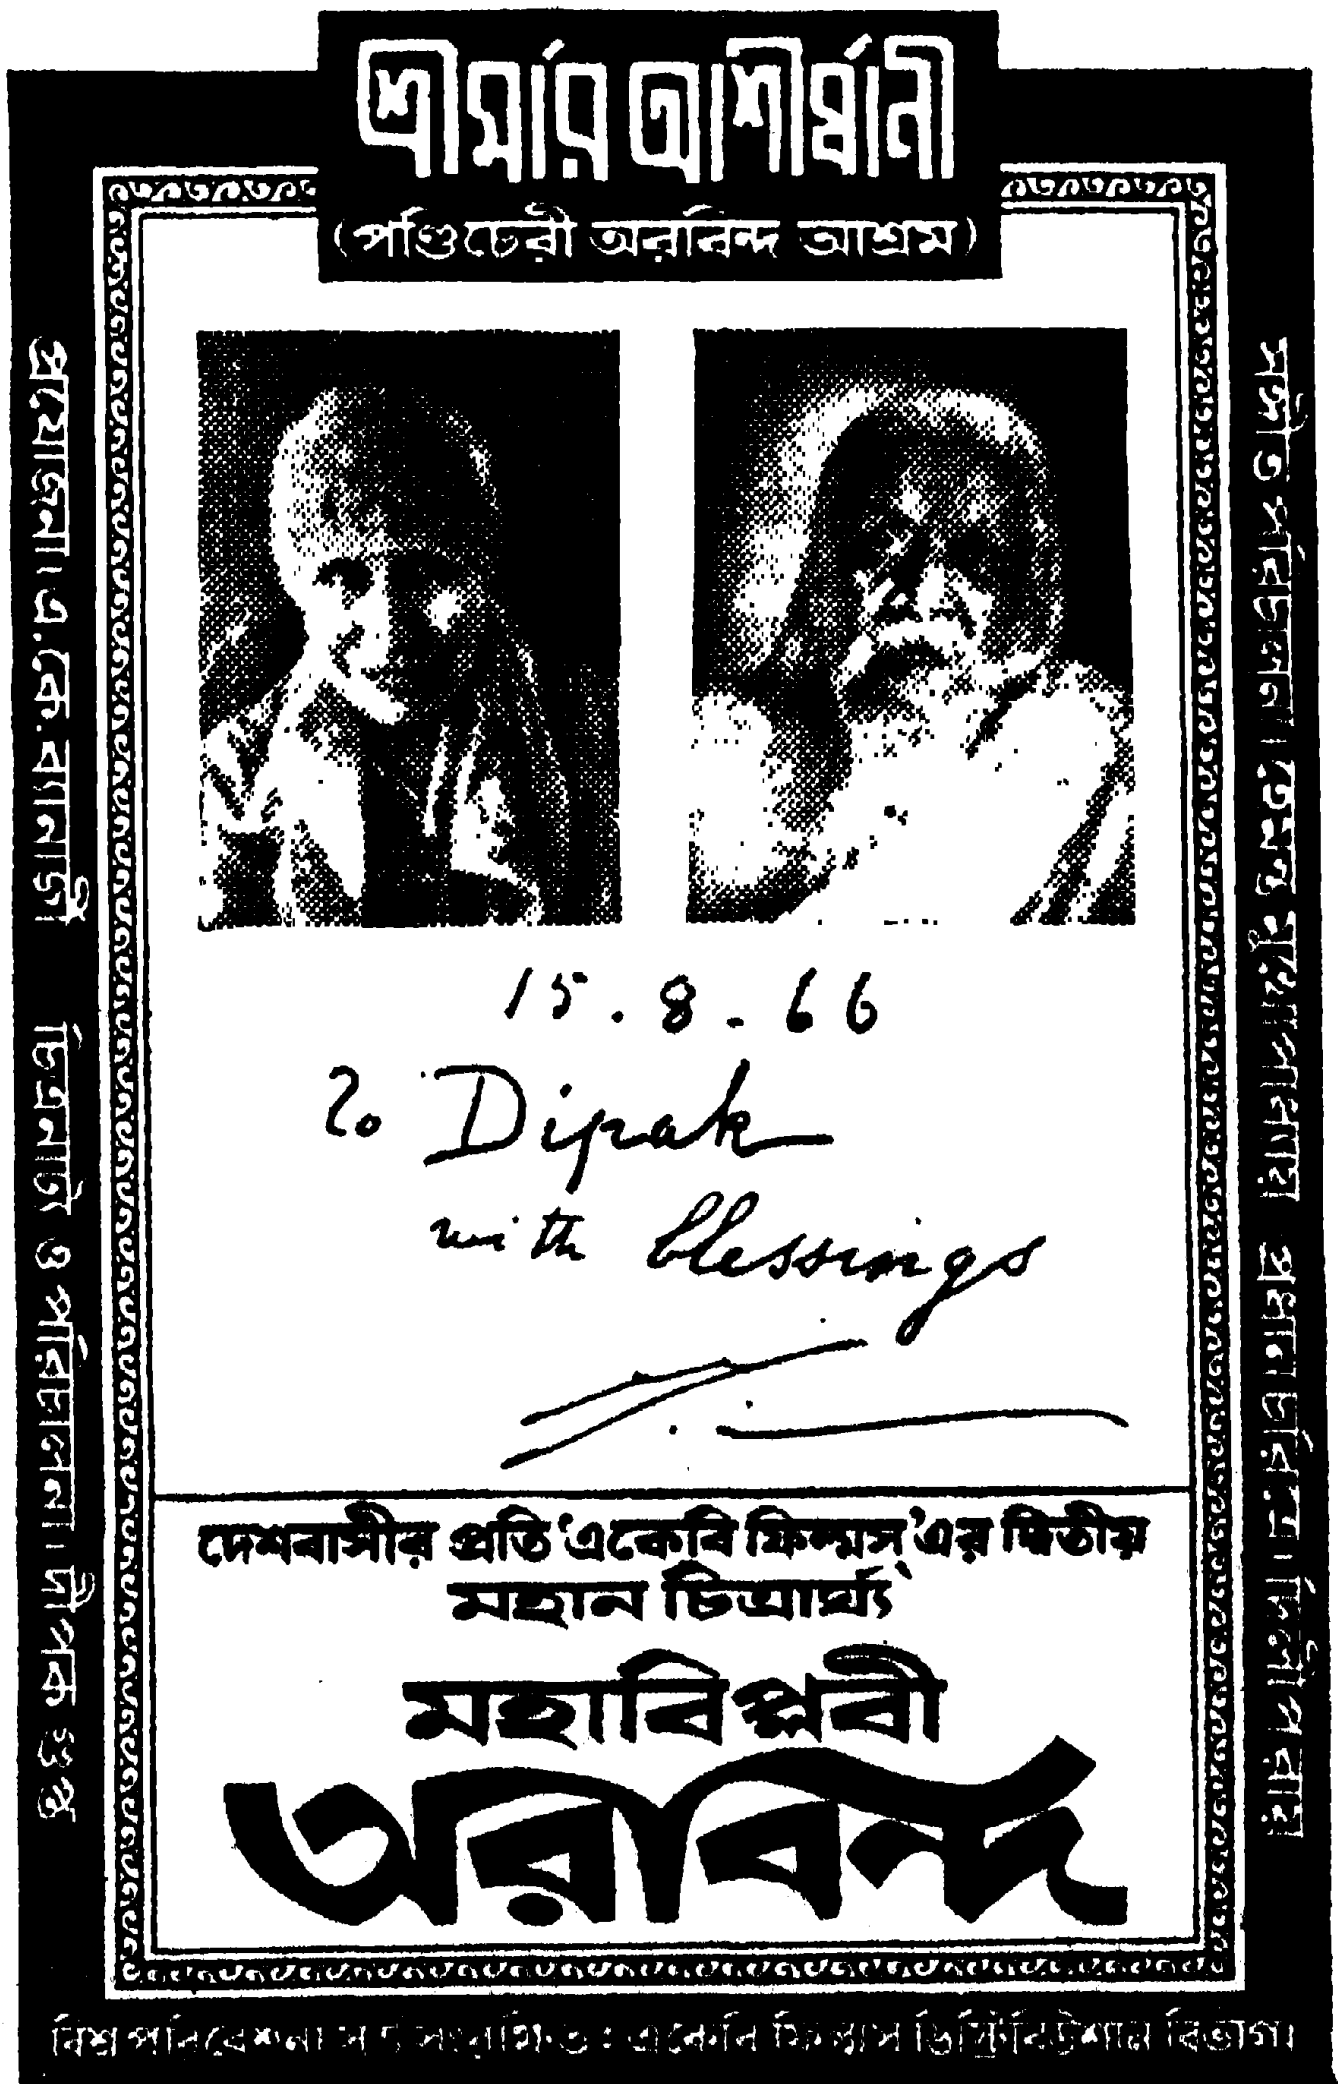 শ্রীমার আশীর্ব্বানী
(পণ্ডিচেরী অরবিন্দ আশ্রম)
প্রযোজনা। এ. কে. ব্যানার্জী
চিত্রনাট্য ও পরিচালনা। দীপক গুপ্ত
সঙ্গীত পরিচালনা।
প্রধান চরিত্রে। দিলীপ রায়
15.8.66
To Dipak
with blessings
দেশবাসীর প্রতি 'একেবি ফিল্মস্'এর দ্বিতীয়
মহান চিত্রার্ঘ্য
মহাবিপ্লবী
অরবিন্দ
বিশ্ব পরিবেশনা সত্ত্ব সংরক্ষিত : একেবি ফিল্মস ডিস্ট্রিবিউশান বিভাগ।